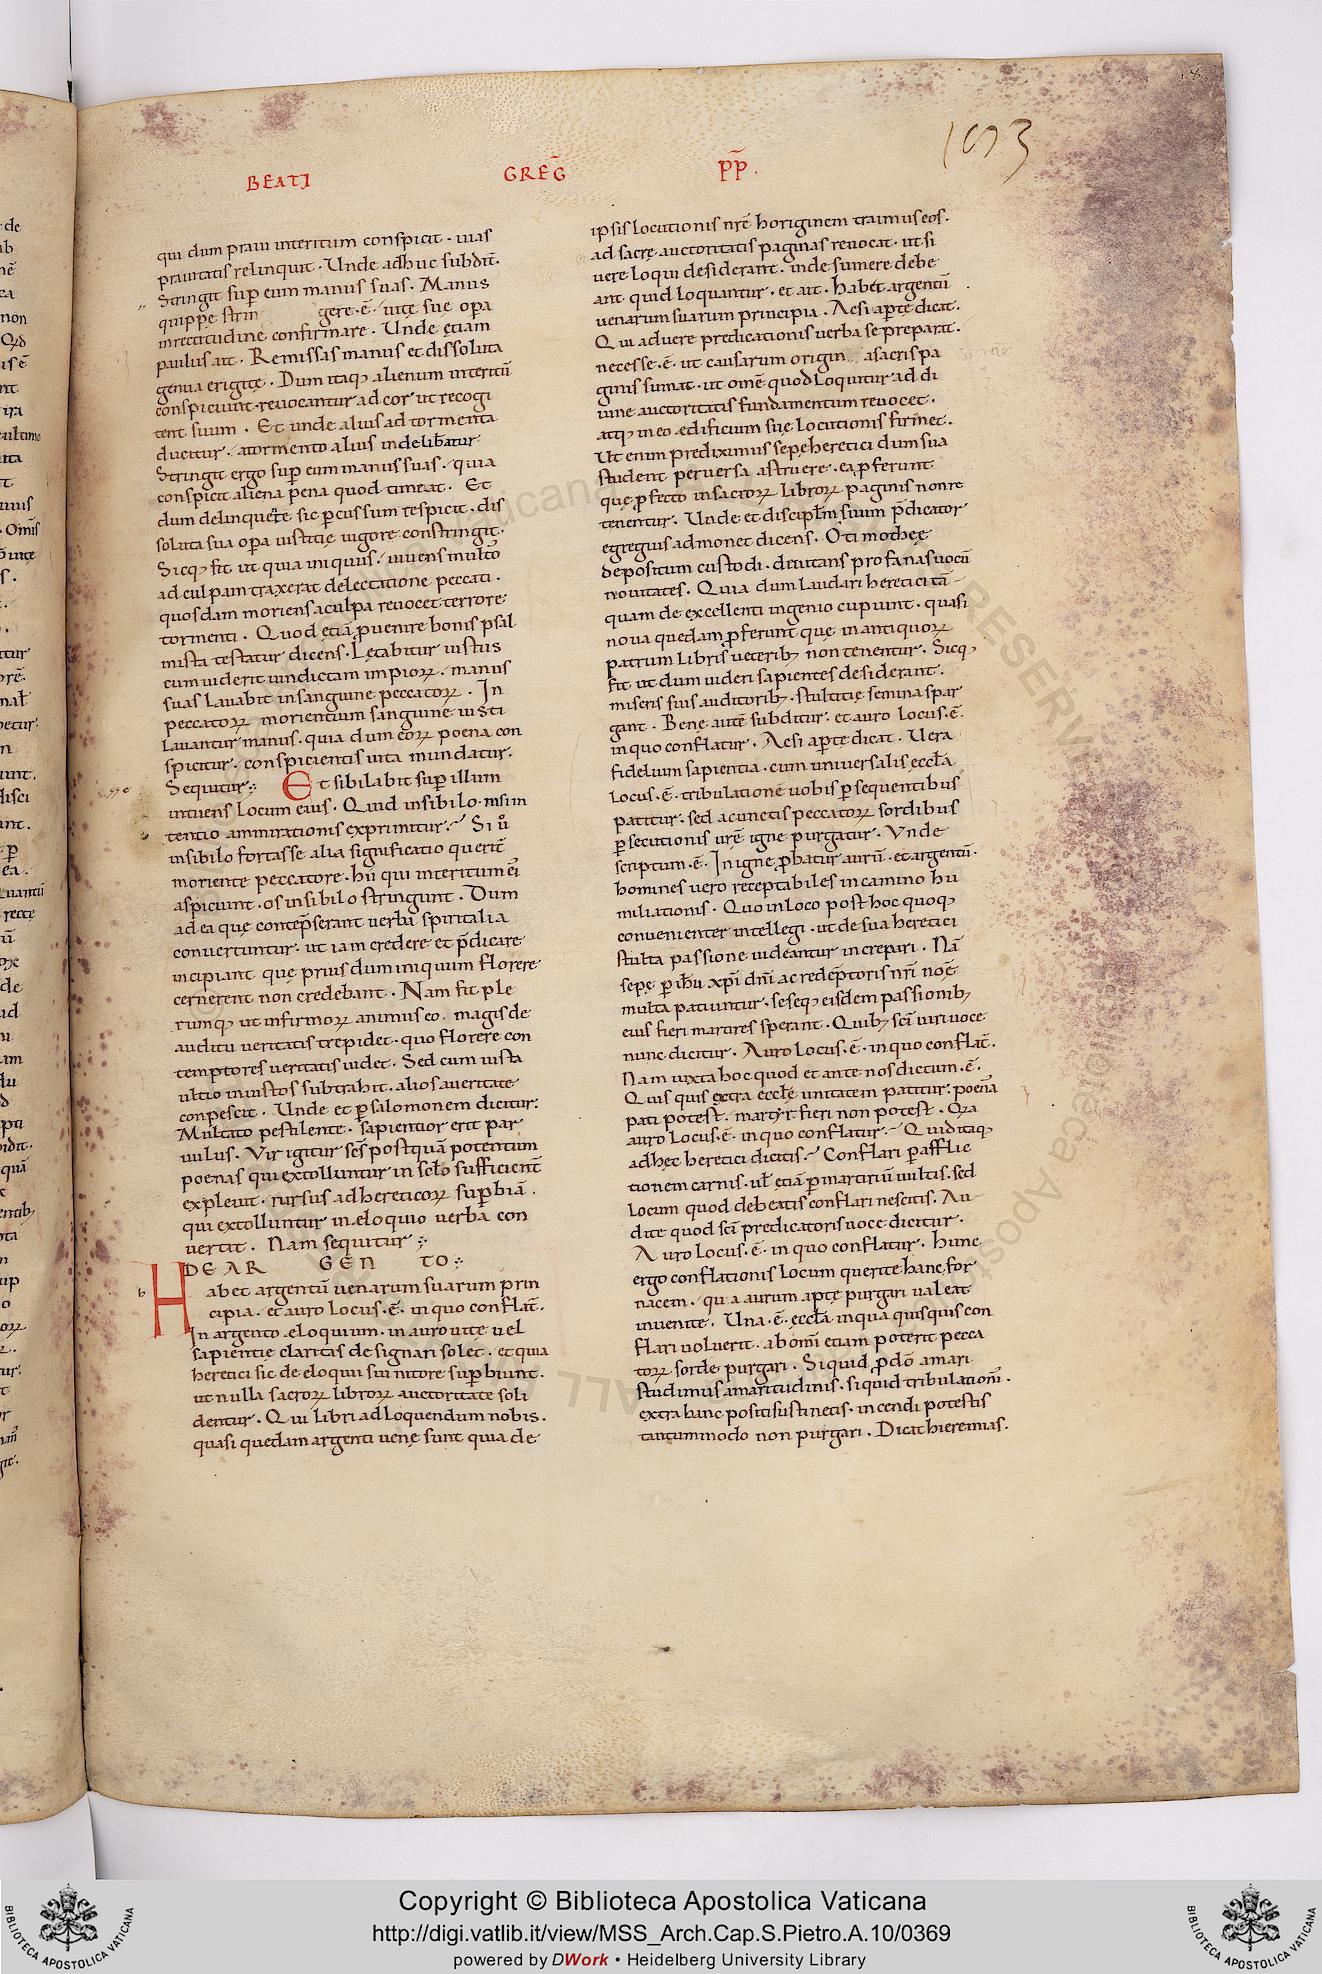 BEATI GREḠ P̄P̄.
1073
qui dum praui interitum conspicit · uias
prauitatis relinquit · Unde adhuc subdit̄.
Stringit sup̄ eum manus suas. Manus
quippe strin gere · ē · uitę sue op̄a
in rectitudine confirmare. Unde etiam
paulus ait. Remissas manus et dissoluta
genua erigite. Dum itaq; alienum interitū
conspiciunt · reuocantur ad cor ut recogi
tent suum. Et unde alius ad tormenta
ducitur · a tormento alius in delib̄atur
Stringit ergo sup̄ eum manus suas · quia
conspicit aliena pena quod timeat. Et
dum delinquente sic p̄cussum respicit · dis
soluta sua op̄a iustitię uigore constringit ·
Sicq; fit ut quia iniquus · uiuens multo
ad culpam traxerat delectatione peccati.
quosdam moriens a culpa reuocet terrore
tormenti. Quod etiā p̄uenire bonis psal
mista testatur dicens. Lętabitur iustus
cum uiderit uindictam impioꝝ · manus
suas lauabit in sanguine peccatoꝝ. In
peccatoꝝ morientium sanguine iusti
lauantur manus · quia dum eoꝝ poena con
spicitur · conspicientis uita mundatur.
Sequitur. Et sibilabit sup̄ illum
intuens locum eius. Quid in sibilo · nisi in
tentio ammirationis exprimitur. Si u̇
in sibilo fortasse alia significatio querit̄
moriente peccatore · hii qui interitum ei
aspiciunt · os in sibilo stringunt. Dum
ad ea que contēpserant uerba spiritalia
conuertuntur · ut iam credere et p̄dicare
incipiant que prius dum iniquum florere
cernerent non credebant. Nam fit ple
rumq; ut infirmoꝝ animus eo · magis de
auditu ueritatis trepidet · quo florere con
temptores ueritatis uidet. Sed cum iusta
ultio iniustos subtrahit · alios a ueritate
conpescit. Unde et p̄ salomonem dicitur.
Multato pestilente · sapientior erit par
uulus. Vir igitur sc̄s postquā potentum
poenas qui extolluntur in sclo sufficient̄
expleuit · rursus ad hereticoꝝ sup̄biā.
qui extolluntur in eloquio uerba con
uertit. Nam sequitur
DE ARGENTO
Habet argentū uenarum suarum prin
cipia · et auro locus · ē · in quo conflat̄.
In argento eloquium · in auro uitę uel
sapientię claritas designari solet · et quia
heretici sic de eloqui sui nitore sup̄biunt ·
ut nulla sacroꝝ libroꝝ auctoritate soli
dentur. Qui libri ad loquendum nobis.
quasi quedam argenti uenę sunt quia de
ipsis locutionis nr̄e horiginem traimus eos.
ad sacrę auctoritatis paginas reuocat · ut si
uere loqui desiderant · inde sumere debe
ant quid loquantur · et ait · habet argentū
uenarum suarum principia. Ac si ap̄te dicat.
Qui ad uere predicationis uerba se preparat.
necesse · ē · ut causarum origin a sacris pa
ginis sumat · ut om̄e quod loquitur ad di
uine auctoritatis fundamentum reuocet.
atq; in eo ędificium suę locutionis firmet.
Ut enim prediximus sepe heretici dum sua
student peruersa astruere · ea p̄ferunt
quę p̄fecto in sacroꝝ libroꝝ paginis non re
tenentur. Unde et discipl̄m suum p̄dicator
egregius admonet dicens. O timotheę
depositum custodi · deuitans profanas uocū
nouitates. Quia dum laudari heretici tā
quam de excellenti ingenio cupiunt · quasi
noua quedam p̄ferunt quę in antiquoꝝ
patrum libris ueterib; non tenentur. Sicq;
fit ut dum uideri sapientes desiderant ·
miseris suis auditorib; · stultitię semina spar
gant. Bene autē subditur · et auro locus · ē ·
in quo conflatur. Ac si ap̄te dicat. Uera
fidelium sapientia · cum uniuersalis eccl̄a
locus · ē · tribulatione uobis p̄sequentibus
patitur · sed a cunctis peccatoꝝ sordibus
p̄secutionis ur̄e igne purgatur. Vnde
scriptum · ē · In igne p̄batur aurū · et argentū.
homines uero receptabiles in camino hu
miliationis. Quo in loco post hoc quoq;
conuenienter intellegi · ut de sua heretici
stulta passione uideantur increpari. Nā
sepę p̄ ih̄u xp̄i dn̄i ac redēptoris nr̄i noē
multa patiuntur · seseq; eisdem passionib;
eius fieri martires sperant. Quib; sc̄i uiri uoce
nunc dicitur. Auro locus · ē · in quo conflat̄.
Nam iuxta hoc quod et ante nos dictum · ē ·
Quis quis extra eccl̄ę unitatem patitur · poenā
pati potest · martyr fieri non potest. Qia
auro locus · ē · in quo conflatur. Quid itaq;
adhęc heretici dicitis. Conflari p̄ afflic
tionem carnis · ul̄ etiā p̄ martiriū uultis · sed
locum quod debeatis conflari nescitis. Au
dite quod sc̄i predicatoris uoce dicitur.
Auro locus · ē · in quo conflatur. hunc
ergo conflationis locum querite hanc for
nacem · qua aurum apte purgari ualeat
inuenite. Una · ē · eccl̄a in qua quisquis con
flari uoluerit · ab om̄i etiam poterit pecca
toꝝ sorde purgari. Si quid p̄ dō amari
studinus amaritudinis · si quid tribulationī.
extra hanc positi sustinetis · incendi potestis
tantummodo non purgari. Dicat hieremias.
Copyright © Biblioteca Apostolica Vaticana
http://digi.vatlib.it/view/MSS_Arch.Cap.S.Pietro.A.10/0369
powered by DWork • Heidelberg University Library